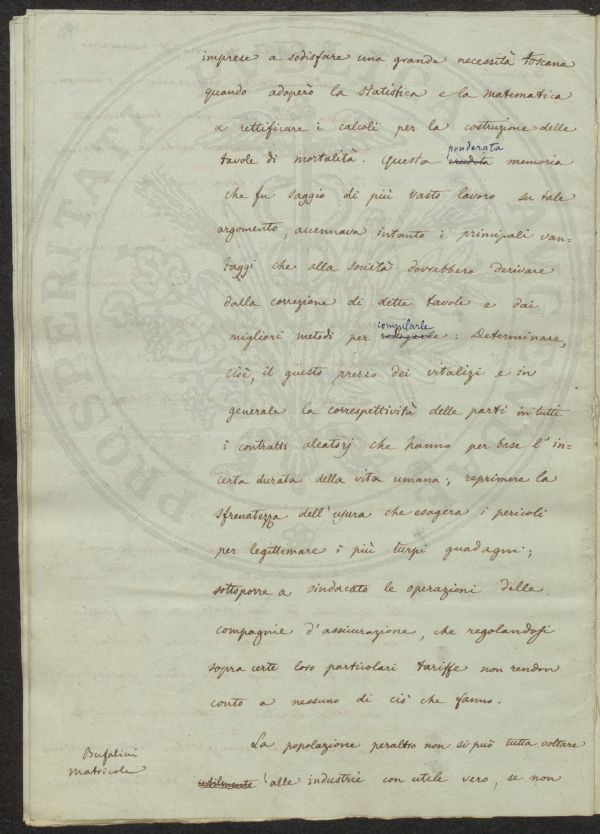 imprese a sodisfare una grande necessità toscana
quando adoperò la statistica e la matematica
a rettificare i calcoli per la costruzione delle
ponderata
tavole di mortalità. Questa erudita memoria
che fu saggio di più vasto lavoro su tale
argomento, accennava intanto i principali van=
taggi che alla società dovrebbero derivare
dalla correzione di dette tavole e dai
compilarle
migliori metodi per redigerle: Determinare,
cioè, il giusto prezzo dei vitalizi e in
generale la correspettività delle parti in tutti
i contratti aleatorj che hanno per base l'in=
certa durata della vita umana; reprimere la
sfrenatezza dell'usura che esagera i pericoli
per legittimare i più turpi guadagni;
sottoporre a sindacato le operazioni delle
compagnie d'assicurazione, che regolandosi
sopra certe loro particolari tariffe non rendon
conto a nessuno di ciò che fanno.
La popolazione peraltro non si può tutta voltare
Bufalini
Matricole
utilmente alle industrie con utile vero, se non
PROSPERITATI